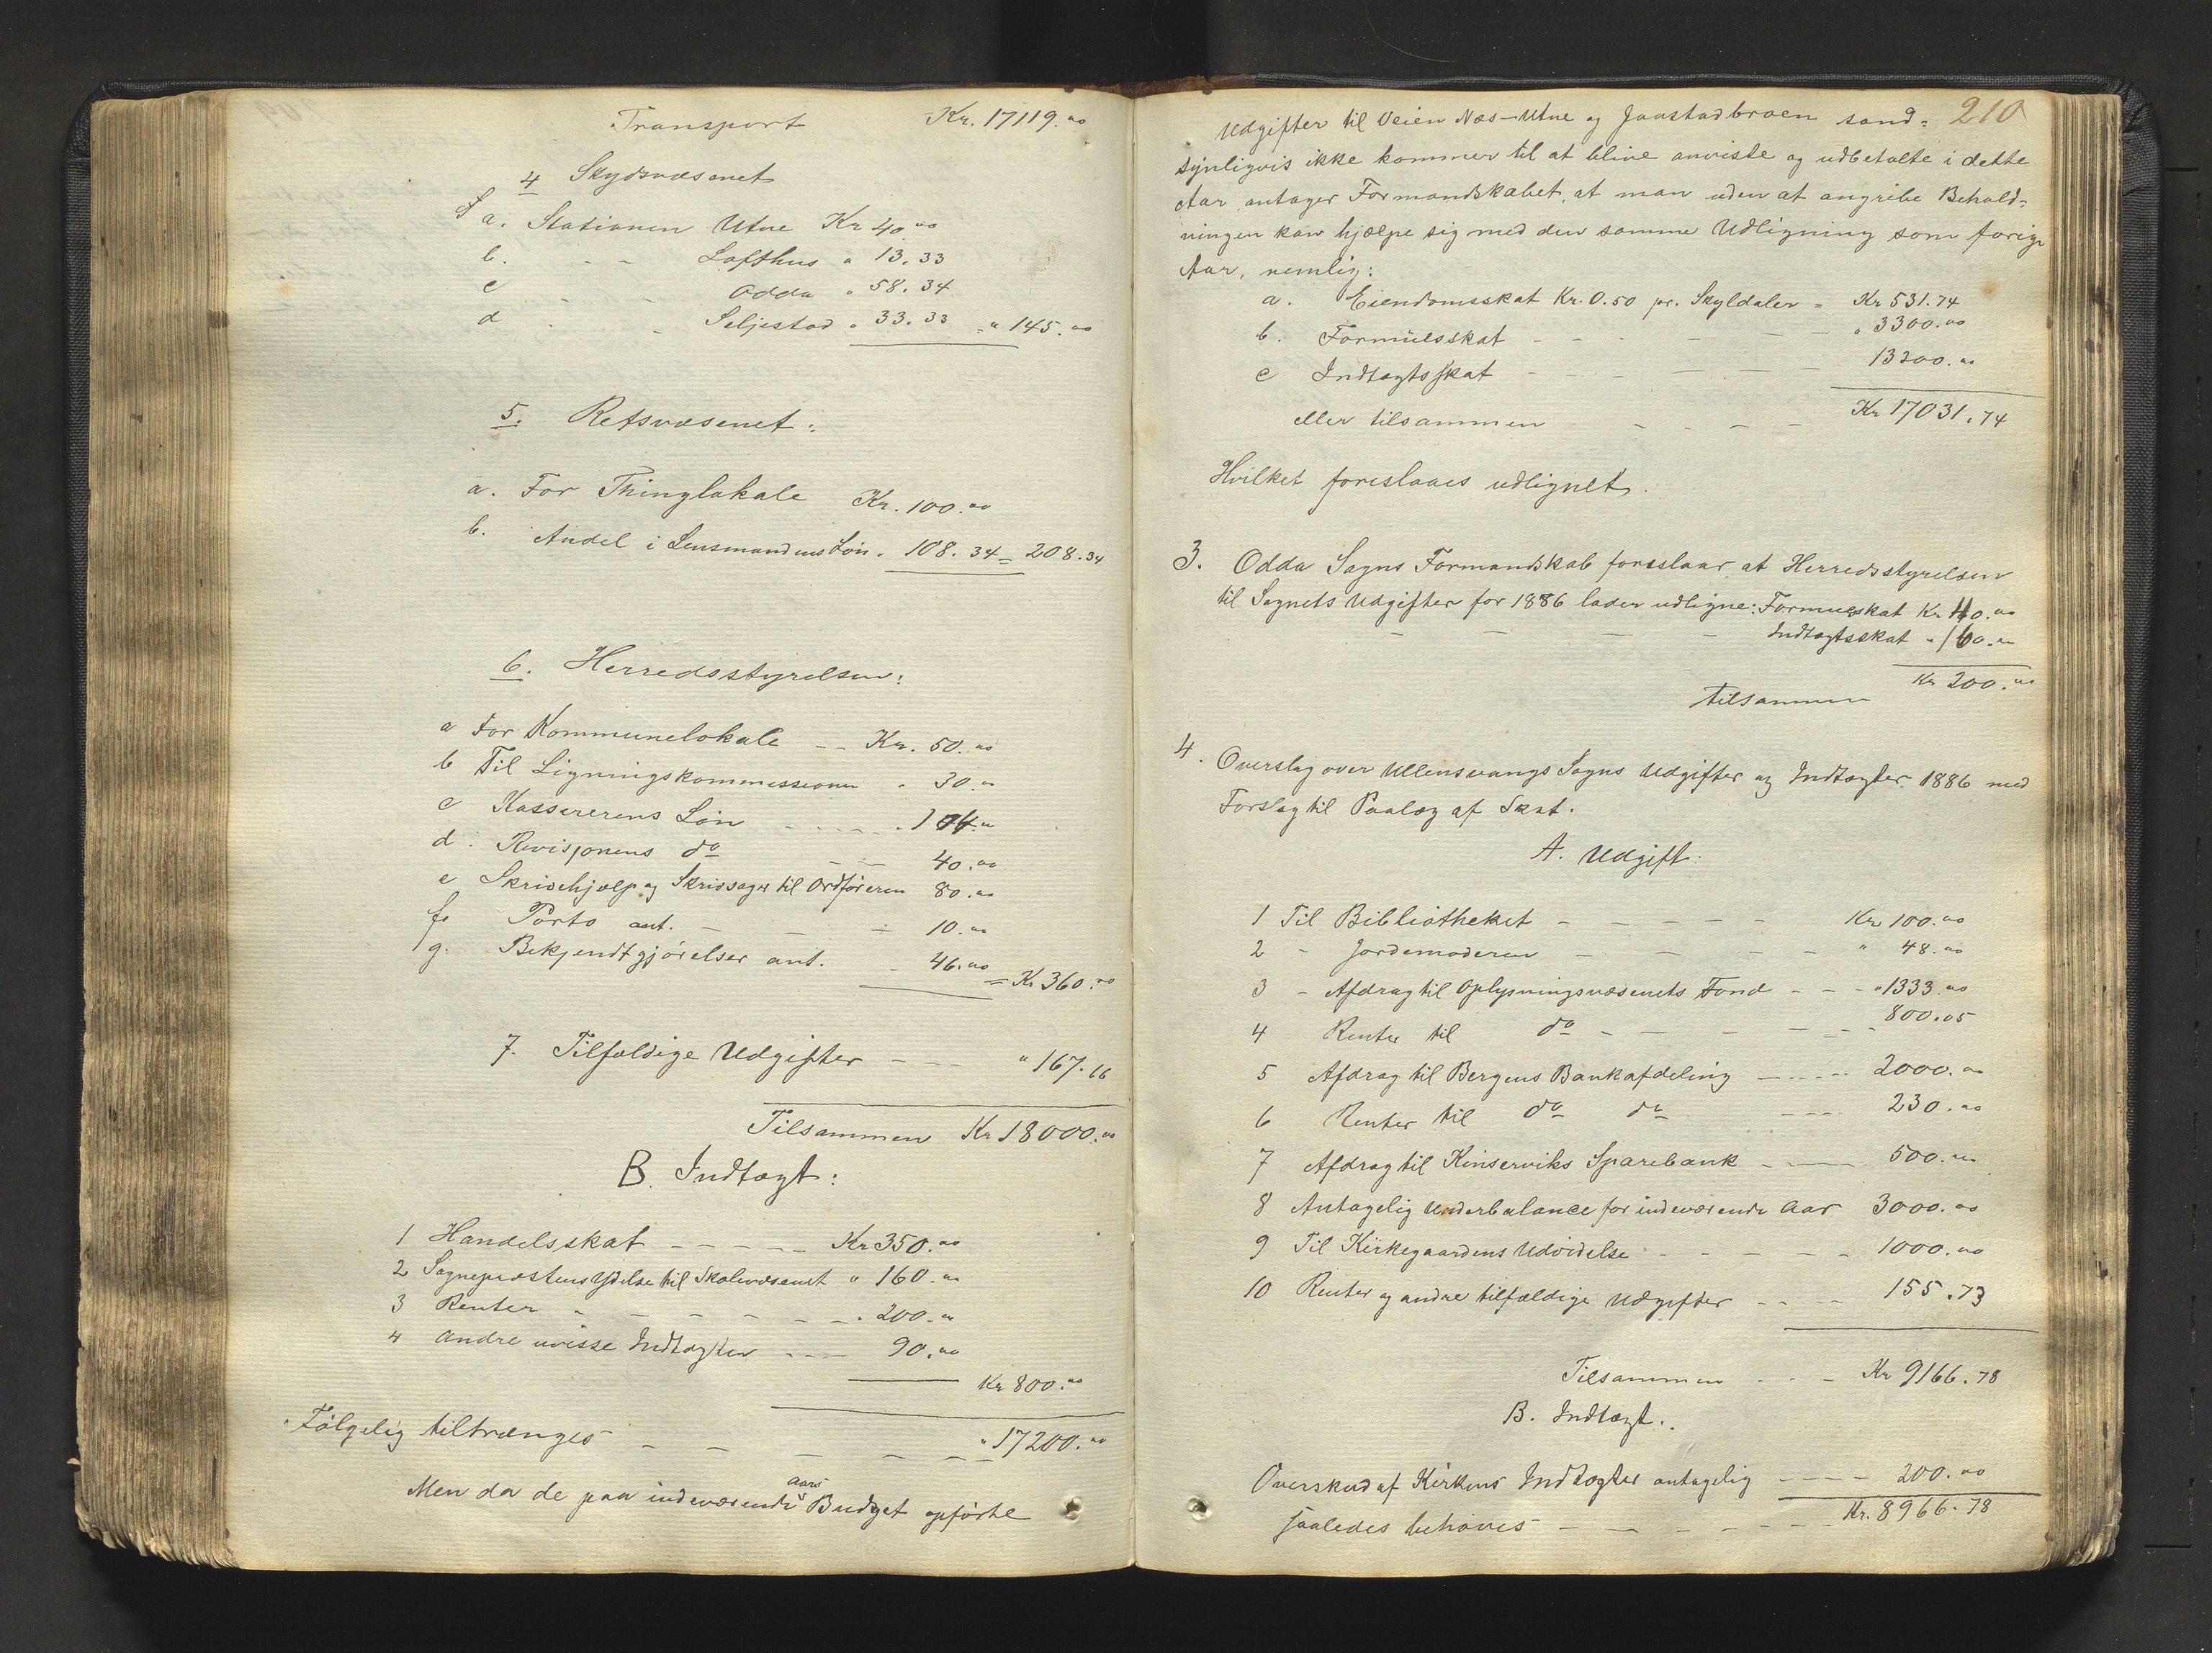 Transport Kr. 17119.00
4 Skydsvæsenet
a. Stationen Utne Kr 40.00
b. - - Lofthus " 13.33
c - - Odda " 58.34
d - - Seljestad " 33.33 = " 145.00
5. Retsvæsenet:
a. For Thinglokale Kr. 100.00
b. Andel i Lensmandens Løn " 108.34 = 208.34
6. Herredsstyrelsen:
a For Kommunelokale -- Kr. 50.00
b Til Ligningskommissionen " 30.00
c Kassererens Løn - - - - " 104.00
d. Revisjonens do - - 40.00
e Skrivehjælp og Skrivsager til Ordføreren 80.00
f. Porto ant. - - - 10.00
g. Bekjendtgjørelser ant. - 46.00
= Kr 360.00
7. Tilfældige Udgifter - - - " 167.66
Tilsammen Kr 18000.00
B. Indtægt:
1 Handelsskat - - - - - Kr 350.00
2 Sognepræstens Ydelse til Skolevæsenet " 160.00
3 Renter - - - - - - " 200.00
4 andre uvisse Indtægter - - - 90.00
Kr 800.00
Følgelig tiltrænges - - - - - - " 17200.00
Men da de paa indeværende Aars Budget opførte
210
Udgifter til Veien Næs-Utne og Jaastadbroen sand-
synligvis ikke kommer til at blive anviste og udbetalte i dette
Aar, antager Formandskabet, at man uden at angribe Behold-
ningen kan hjælpe sig med den samme Udligning som forige
Aar, nemlig:
a. Eiendomsskat Kr. 0.50 pr. Skyldaler = Kr 531.74
b. Formuesskat - - - - - - " 3300.00
c Indtægtsskat - - - - - - 13200.00
eller tilsammen - - - - Kr 17031.74
Hvilket foreslaaes udlignet.
3. Odda Sogns Formandskab foreslaar at Herredsstyrelsen
til Sognets Udgifter for 1886 lader udligne: Formueskat Kr 40.00
- - - - Indtægtsskat " 160.00
tilsammen Kr 200.00
4. Overslag over Ullensvangs Sogns Udgifter og Indtægter 1886 med
Forslag til Paalæg af Skat.
A. Udgift:
1 Til Bibliotheket - - - - - Kr 100.00
2 - Jordemoderen - - - - - " 48.00
3 - Afdrag til Oplysningsvæsenets Fond - - - " 1333.00
4 Renter til do - - - - - - 800.05
5 Afdrag til Bergens Bankafdeling - - - - - 2000.00
6 Renter til do do - - - - 230.00
7 Afdrag til Kinserviks Sparebank - - - 500.00
8 Antagelig Underbalance for indeværende Aar 3000.00
9 Til Kirkegaardens Udvidelse - - - - - 1000.00
10 Renter og andre tilfældige Udgifter - - - - 155.73
Tilsammen - - - Kr 9166.78
B. Indtægt.
Overskud af Kirkens Indtægter antagelig - - - - 200.00
saaledes behøves - - - - - - - Kr. 8966.78